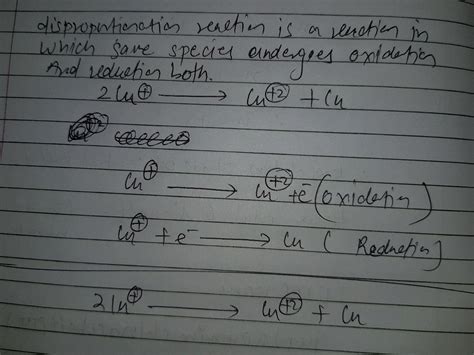 disproportionation reaction is a reaction in
which same species undergoes oxidation
And reduction both.
2Cu⁺ → Cu⁺² + Cu
Cu⁺ → Cu⁺² + e⁻ (oxidation)
Cu⁺ + e⁻ → Cu ( Reduction)
2Cu⁺ → Cu⁺² + Cu